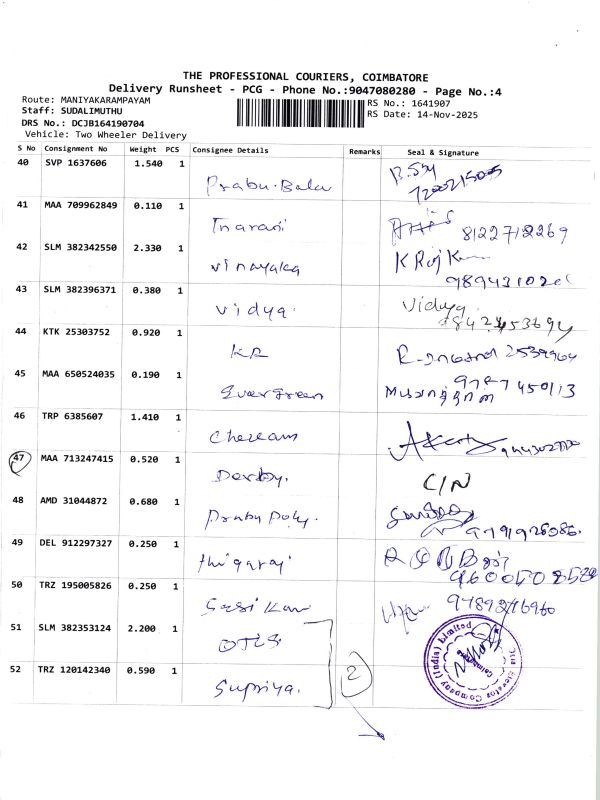 THE PROFESSIONAL COURIERS, COIMBATORE
Delivery Runsheet - PCG - Phone No.:9047080280 - Page No.:4
Route: MANIYAKARAMPAYAM
Staff: SUDALIMUTHU
DRS No.: DCJB164190704
Vehicle: Two Wheeler Delivery
RS No.: 1641907
RS Date: 14-Nov-2025
S No Consignment No Weight PCS Consignee Details Remarks Seal & Signature
40 SVP 1637606 1.540 1 Prabu. Balu
41 MAA 709962849 0.110 1 Tharani 8122712269
42 SLM 382342550 2.330 1 Vinayaka
43 SLM 382396371 0.380 1 Vidya. Vidya
44 KTK 25303752 0.920 1 KR
45 MAA 650524035 0.190 1 Evergreen
46 TRP 6385607 1.410 1
47 MAA 713247415 0.520 1 Derby. C/N
48 AMD 31044872 0.680 1 Prabu Poly.
49 DEL 912297327 0.250 1 thigaraj
50 TRZ 195005826 0.250 1
51 SLM 382353124 2.200 1 OTIS
52 TRZ 120142340 0.590 1 Supriya.
2
Otis Elevator Company (India) Limited
Coimbatore